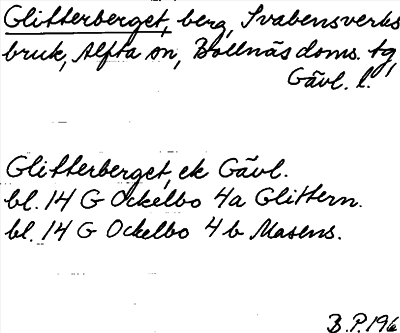 Glitterberget, berg, Svabensverks
bruk, Alfta sn, Bollnäs doms. tg,
Gävl. l.
Glitterberget, ek Gävl.
bl. 14 G Ockelbo 4a Glittern.
bl. 14 G Ockelbo 4 b Masens.
B.P. 196